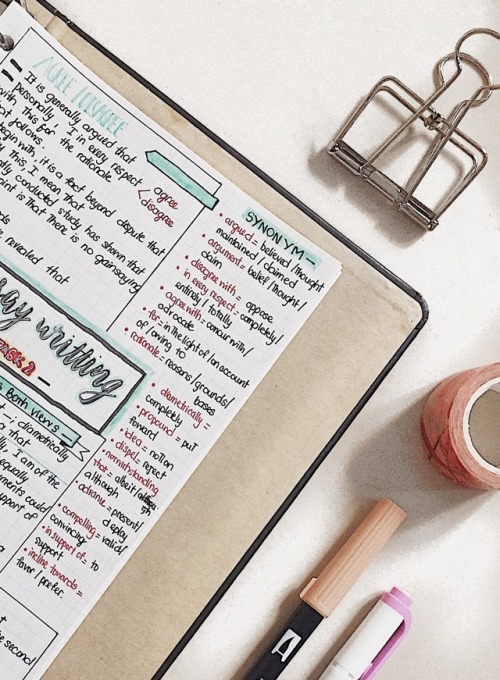 AGREE / DISAGREE
It is generally argued that
personally, I in every respect
with This for the rationale
that follows.
begin with, it is a fact beyond dispute that
By this, I mean that
conducted study has shown that
point is That There is no gainsaying
revealed that
agree
disagree
SYNONYM -
• argued = believed / Thought
maintained / claimed
• argument = belief / Thought /
claim
• disagree with = oppose
• in every respect = completely/
entirely / totally
• agree with = concur with/
advocate
• for = in The light of / on account
of / owing to
• rationale = reasons / grounds/
bases
essay writting
TASK 2 -
Both Views
• diametrically =
completely
• propound = put
forward
• idea = notion
• dispel = reject
• notwithstanding
that = albeit /
although
• advance = present/
deploy
• compelling = valid/
convincing
• in support of = to
support
• incline towards =
favor / prefer.
diametrically
a that
I am of the
equally
could
support of
a
second
A